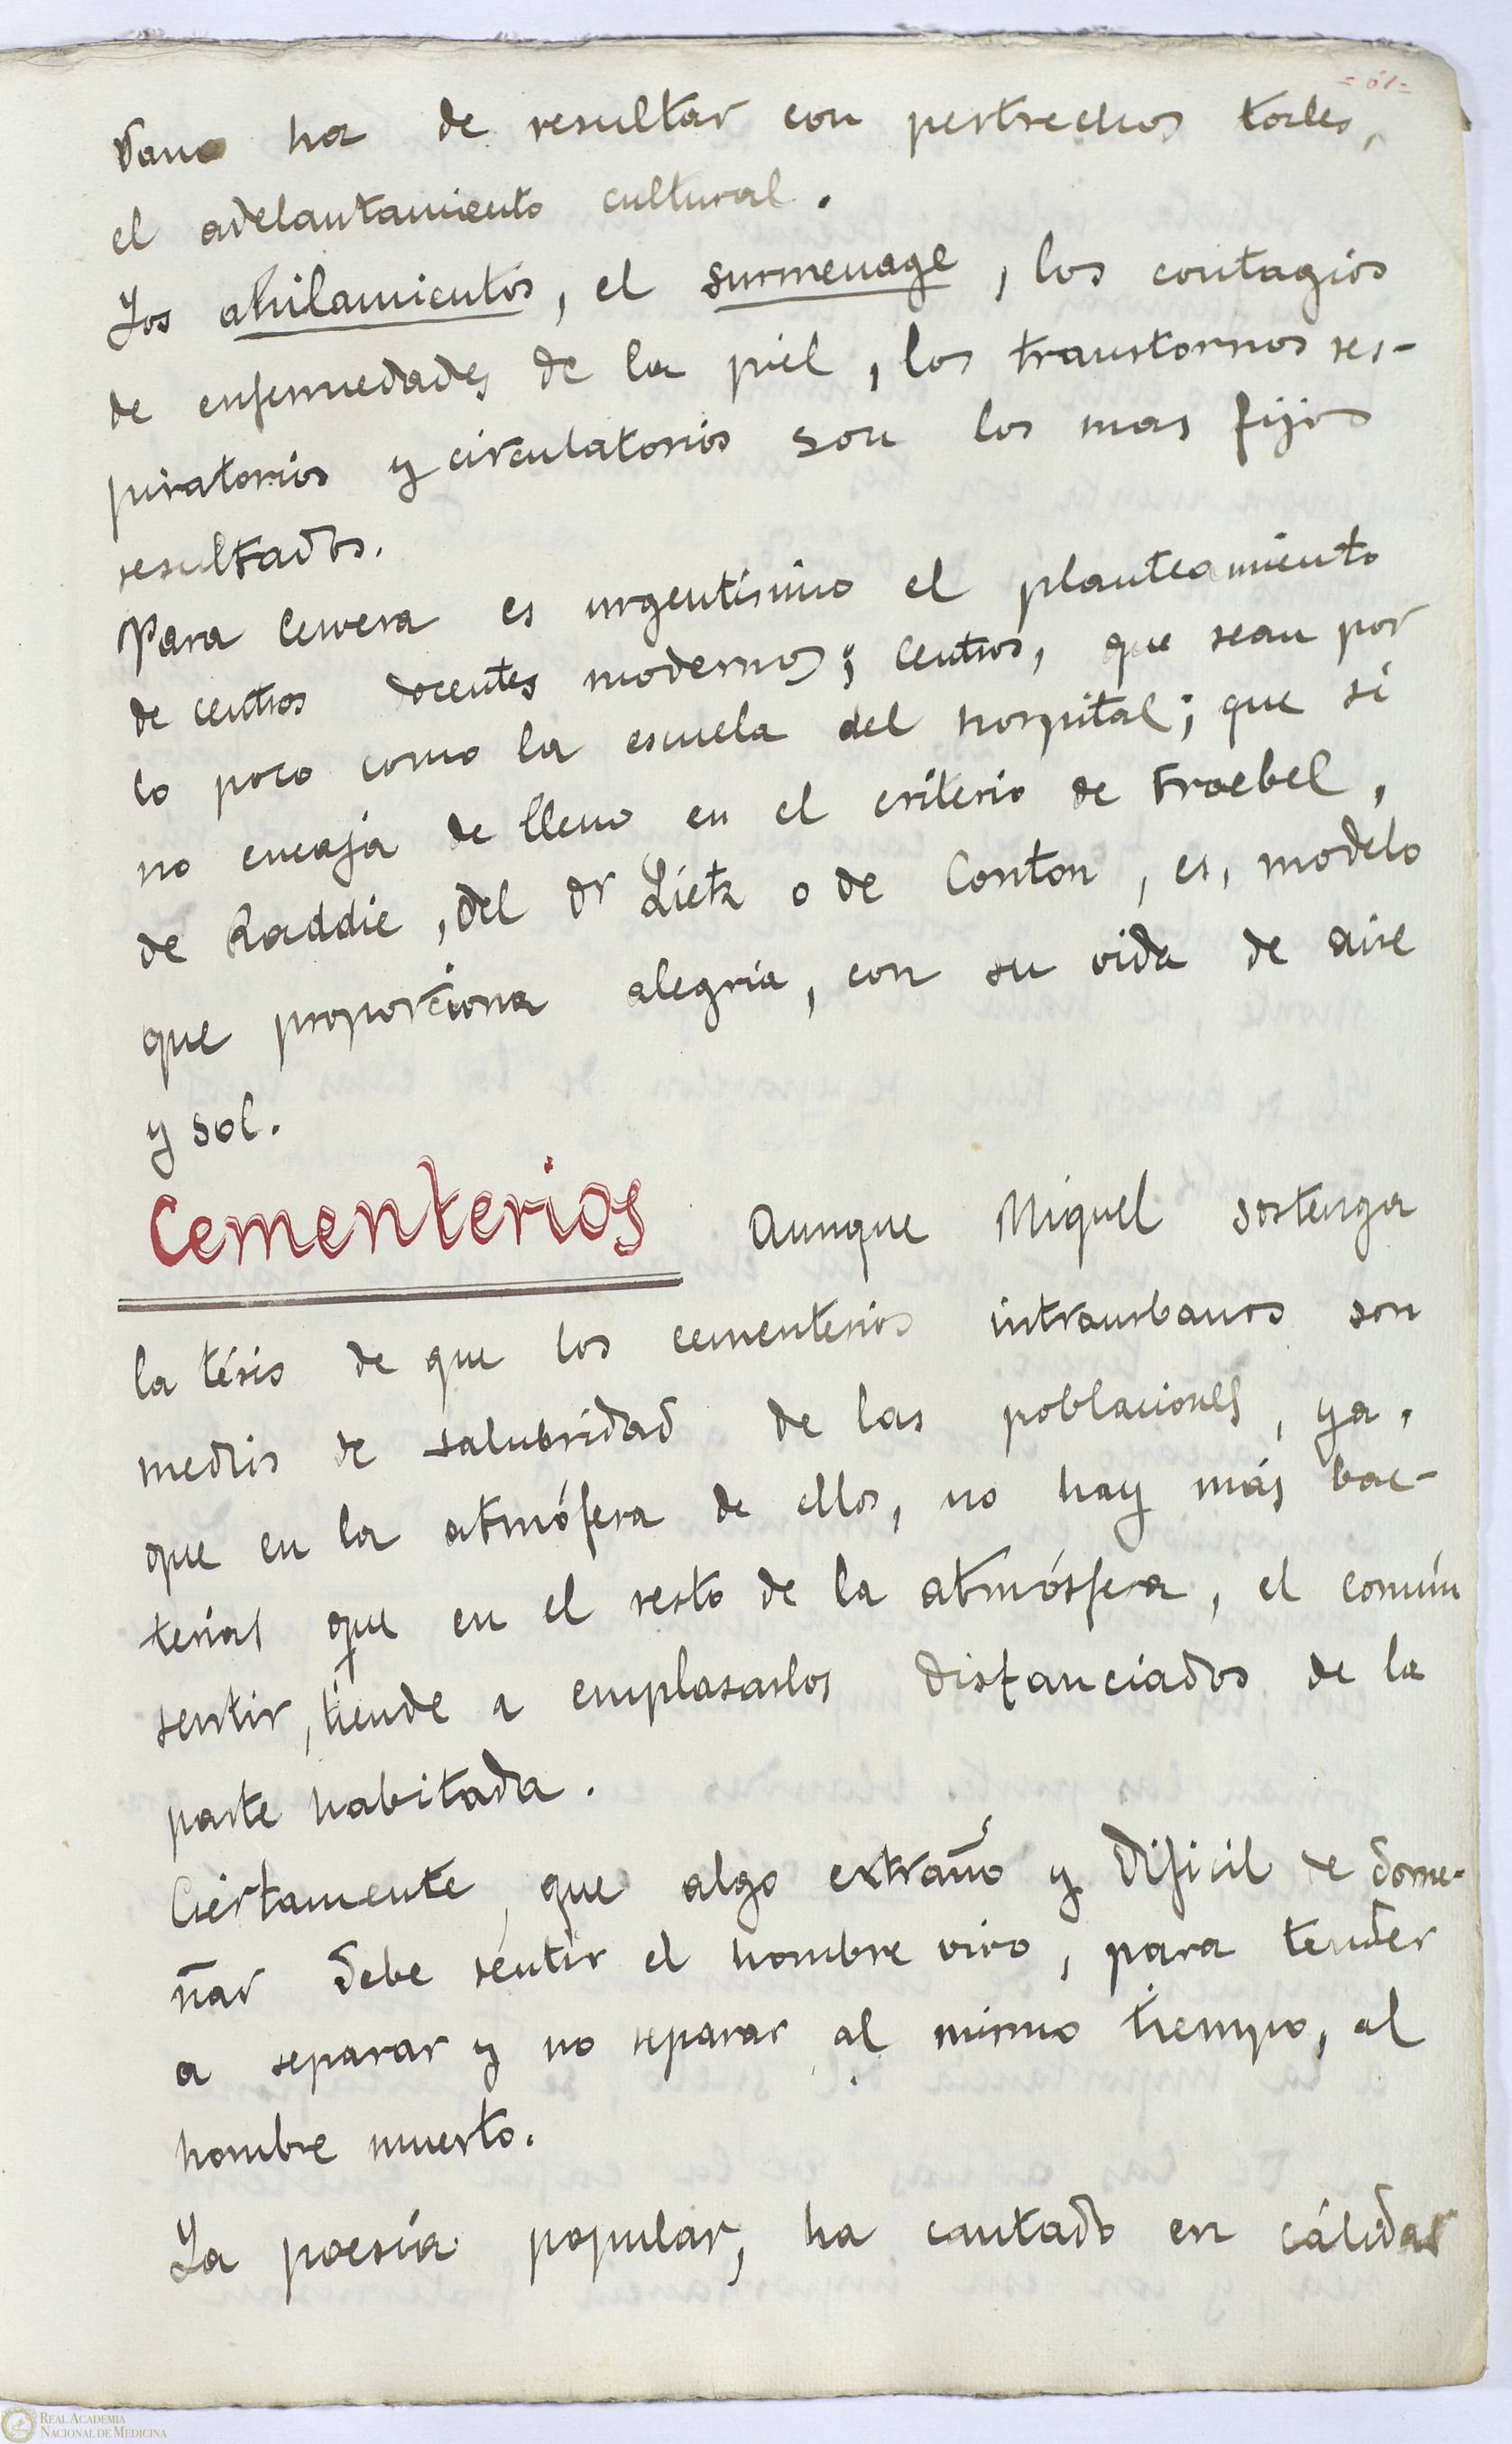 = 61 =
vano ha de resultar con pertrechos tales,
el adelantamiento cultural.
Los ahilamientos, el surmenage, los contagios
de enfermedades de la piel, los transtornos res-
piratorios y circulatorios son los mas fijos
resultados.
Para Cervera es urgentísimo el planteamiento
de centros docentes modernos; centros, que sean por
lo poco como la escuela del hospital; que si
no encaja de lleno en el criterio de Froebel,
de Raddie, del Dr Lietz o de Conton, es, modelo
que proporciona alegria, con su vida de aire
y sol.
Cementerios Aunque Miquel sostenga
la tésis de que los cementerios intraurbanos son
medios de salubridad de las poblaciones, ya,
que en la atmófera de ellos, no hay más bac-
terias que en el resto de la atmósfera, el común
sentir, tiende a emplasarlos distanciados de la
parte habitada.
Ciertamente, que algo extraño y dificil de dome-
ñar debe sentir el hombre vivo, para tender
a separar y no separar al mismo tiempo, al
hombre muerto.
La poesía popular, ha cantado en cálidas
REAL ACADEMIA
NACIONAL DE MEDICINA